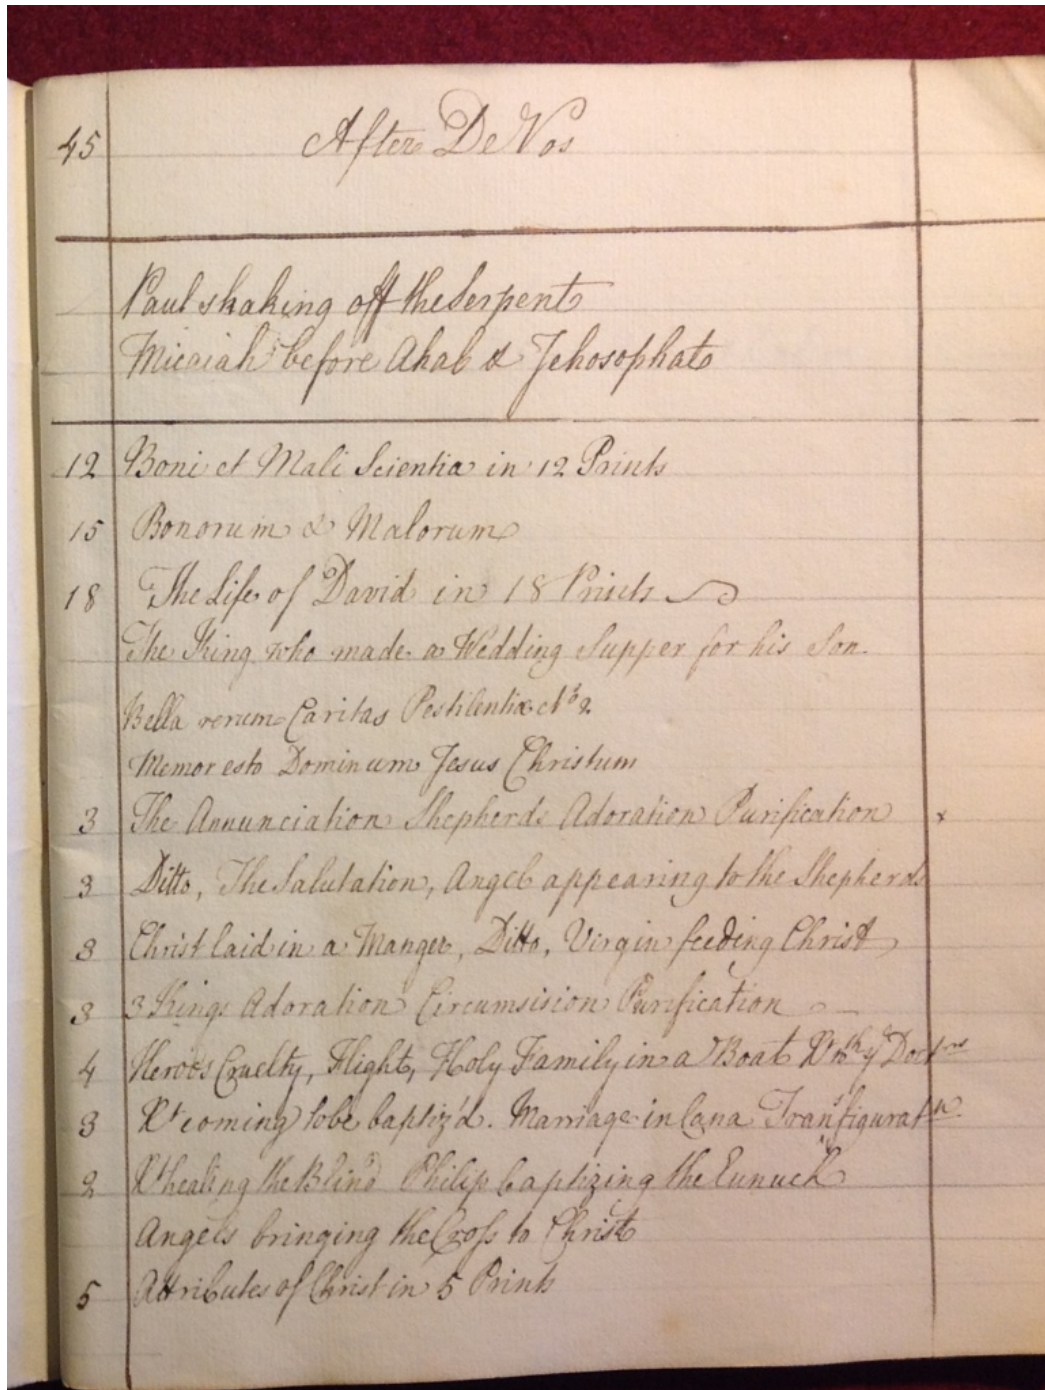 45 After De Vos
Paul shaking off the Serpent
Micaiah before Ahab & Jehosophat
12 Boni et Mali Scientia in 12 Prints
15 Bonorum & Malorum
18 The Life of David in 18 Prints
The King who made a Wedding Supper for his Son.
Bella rerum Caritas Pestilentiæ 2
Memor esto Dominum Jesus Christum
3 The Annunciation Shepherds Adoration Purification x
3 Ditto, The Salutation, Angel appearing to the Shepherds
3 Christ laid in a Manger, Ditto, Virgin feeding Christ
3 3 Kings Adoration Circumsision Purification
4 Herods Cruelty, Flight, Holy Family in a Boat Xt wth ye Doctrs
3 Xt coming to be baptiz'd. Marriage in Cana Transfiguratn
2 Xt healing the Blind Philip baptizing the Eunuch
Angels bringing the Croſs to Christ
5 Attributes of Christ in 5 Prints